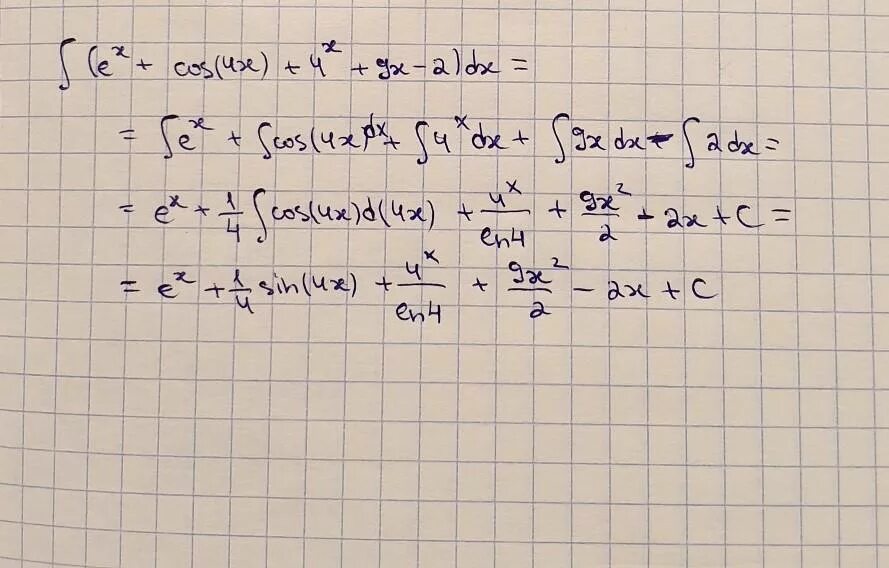 ∫(eˣ + cos(4x) + 4ˣ + 9x - 2)dx =
= ∫eˣ + ∫cos(4x)dx + ∫4ˣdx + ∫9x dx - ∫2dx =
= eˣ + 1/4 ∫cos(4x)d(4x) + 4ˣ/ln4 + 9x²/2 - 2x + C =
= eˣ + 1/4 sin(4x) + 4ˣ/ln4 + 9x²/2 - 2x + C